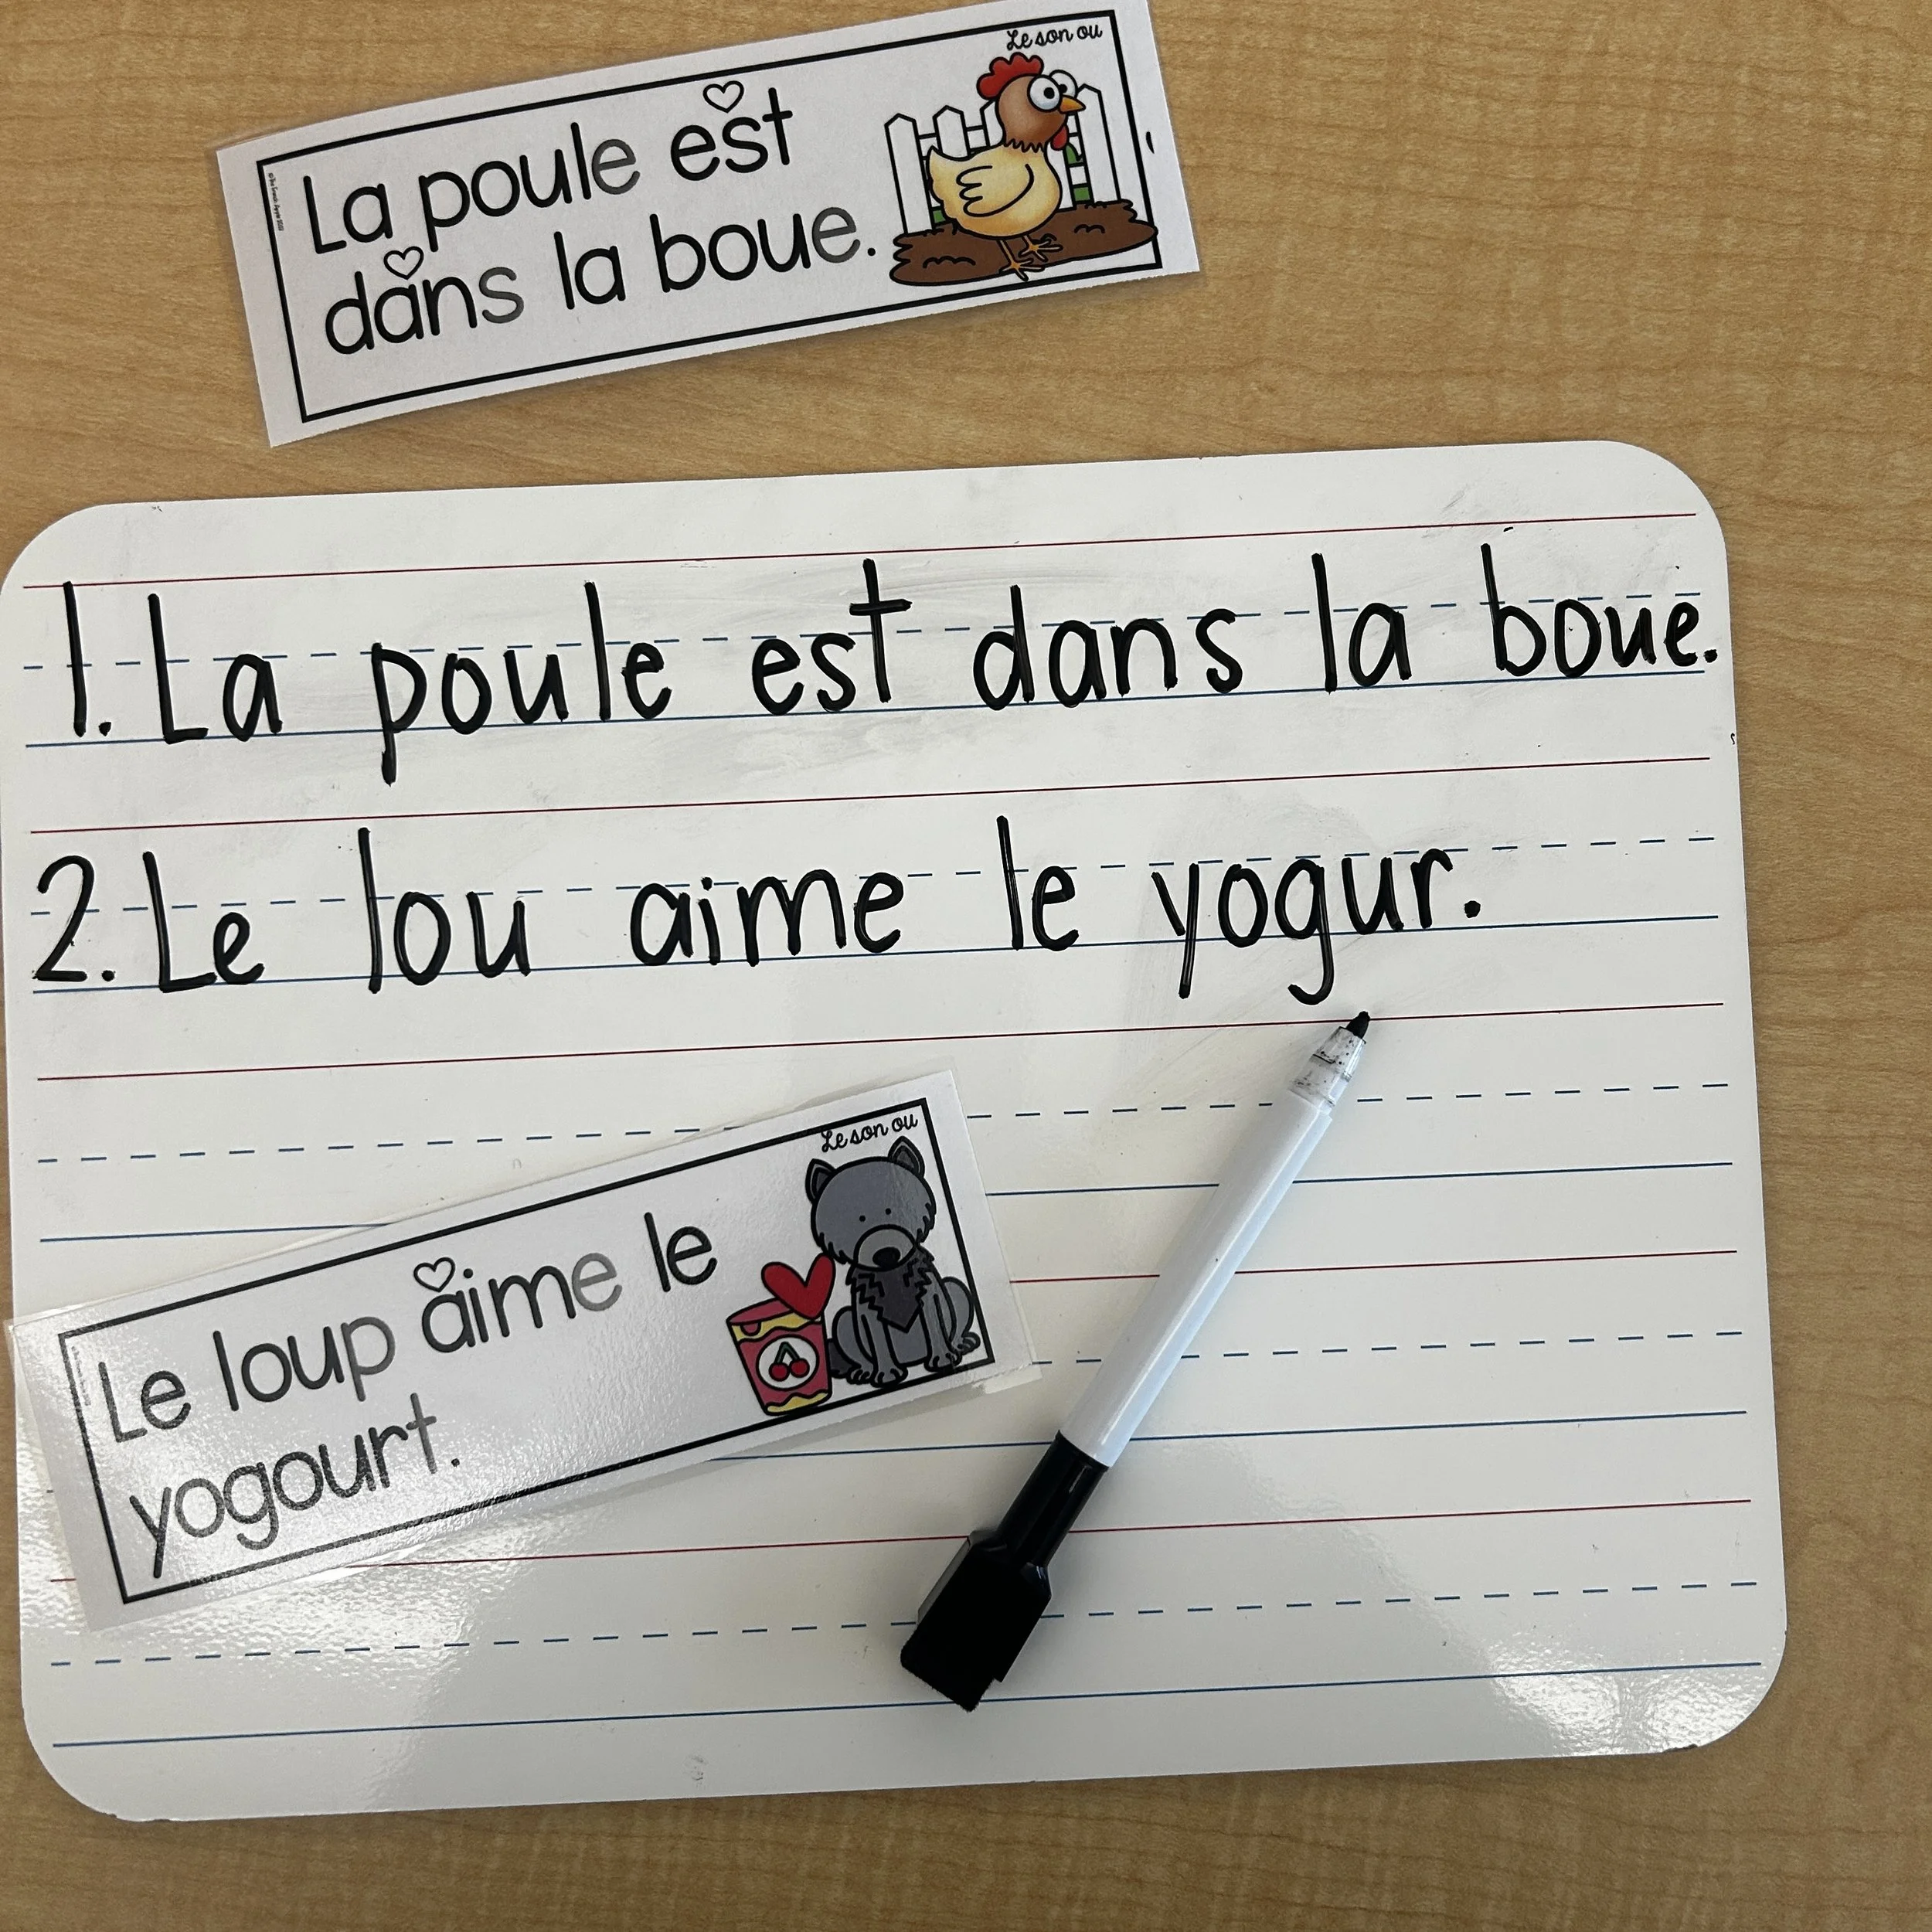 Le son ou
La poule est
dans la boue.
1. La poule est dans la boue.
2. Le lou aime le yogur.
Le son ou
Le loup aime le
yogourt.